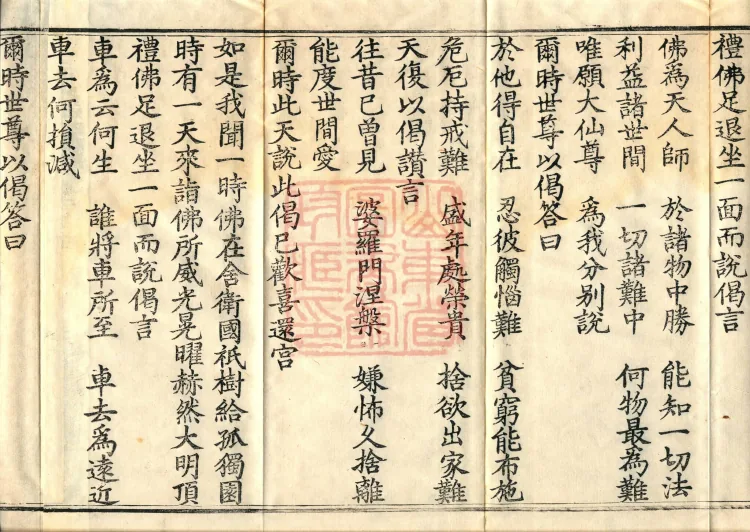 禮佛足退坐一面而說偈言
佛為天人師　於諸物中勝　能知一切法
利益諸世間　一切諸難中　何物最為難
唯願大仙尊　為我分別說
爾時世尊以偈答曰
於他得自在　忍彼觸惱難　貧窮能布施
危厄持戒難　盛年處榮貴　捨欲出家難
天復以偈讚言
往昔已曾見　婆羅門涅槃　嫌怖久捨離
能度世間愛
爾時此天說此偈已歡喜還宮
如是我聞一時佛在舍衛國祇樹給孤獨園
時有一天來詣佛所威光晃曜赫然大明頂
禮佛足退坐一面而說偈言
車為云何生　誰將車所至　車去為遠近
車去何損減
爾時世尊以偈答曰